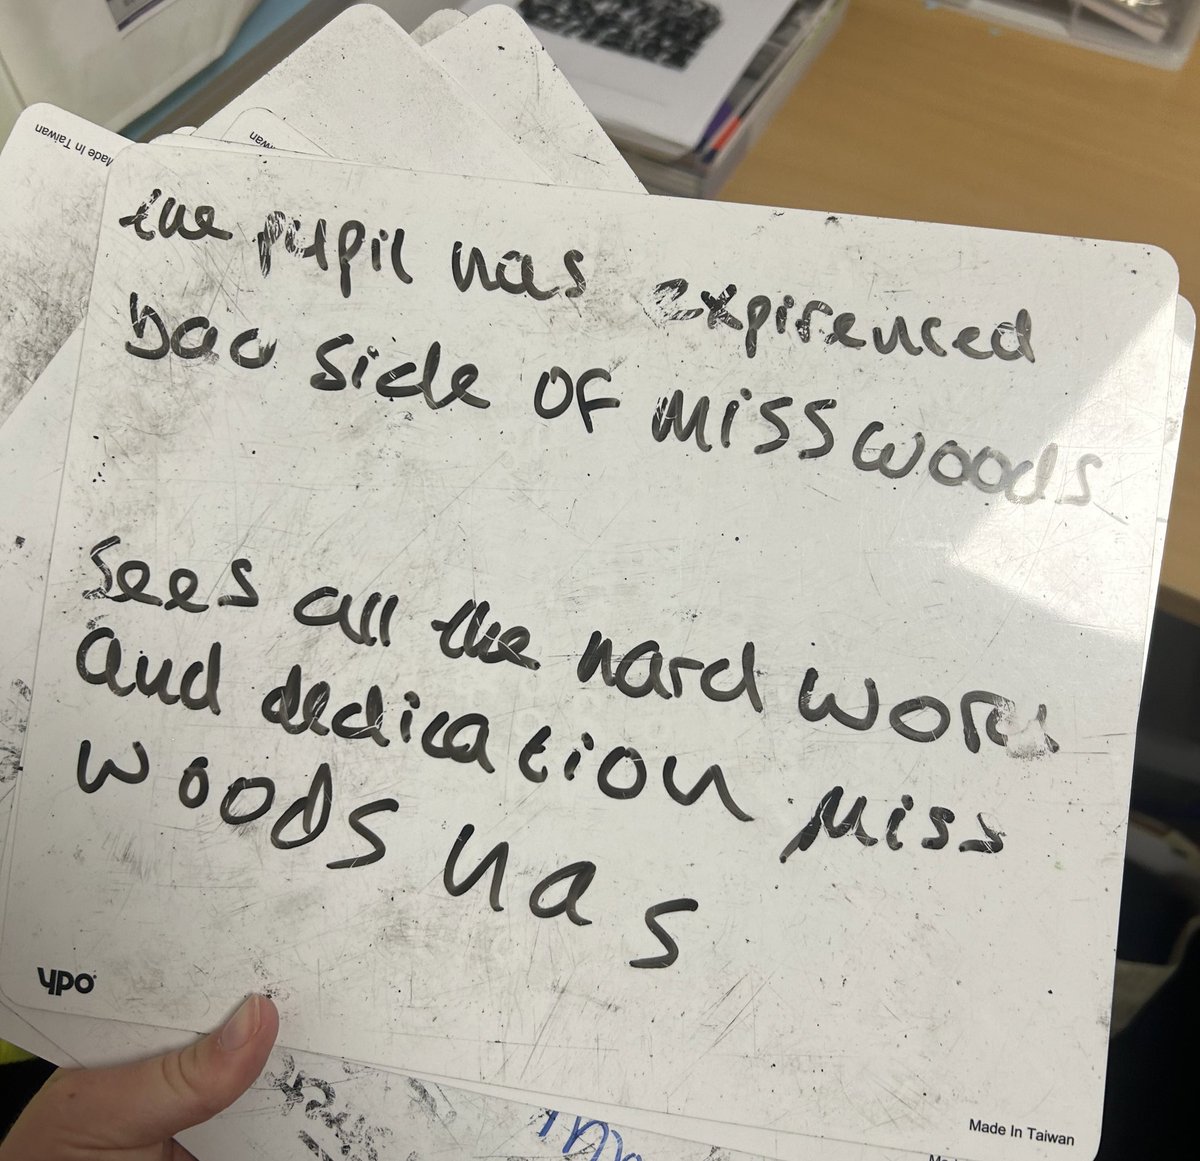 Made In Taiwan
wan
the pupil has expirenced
bad side of miss woods
sees all the hard work
and dedication miss
woods has
ypo
Made In Taiwan